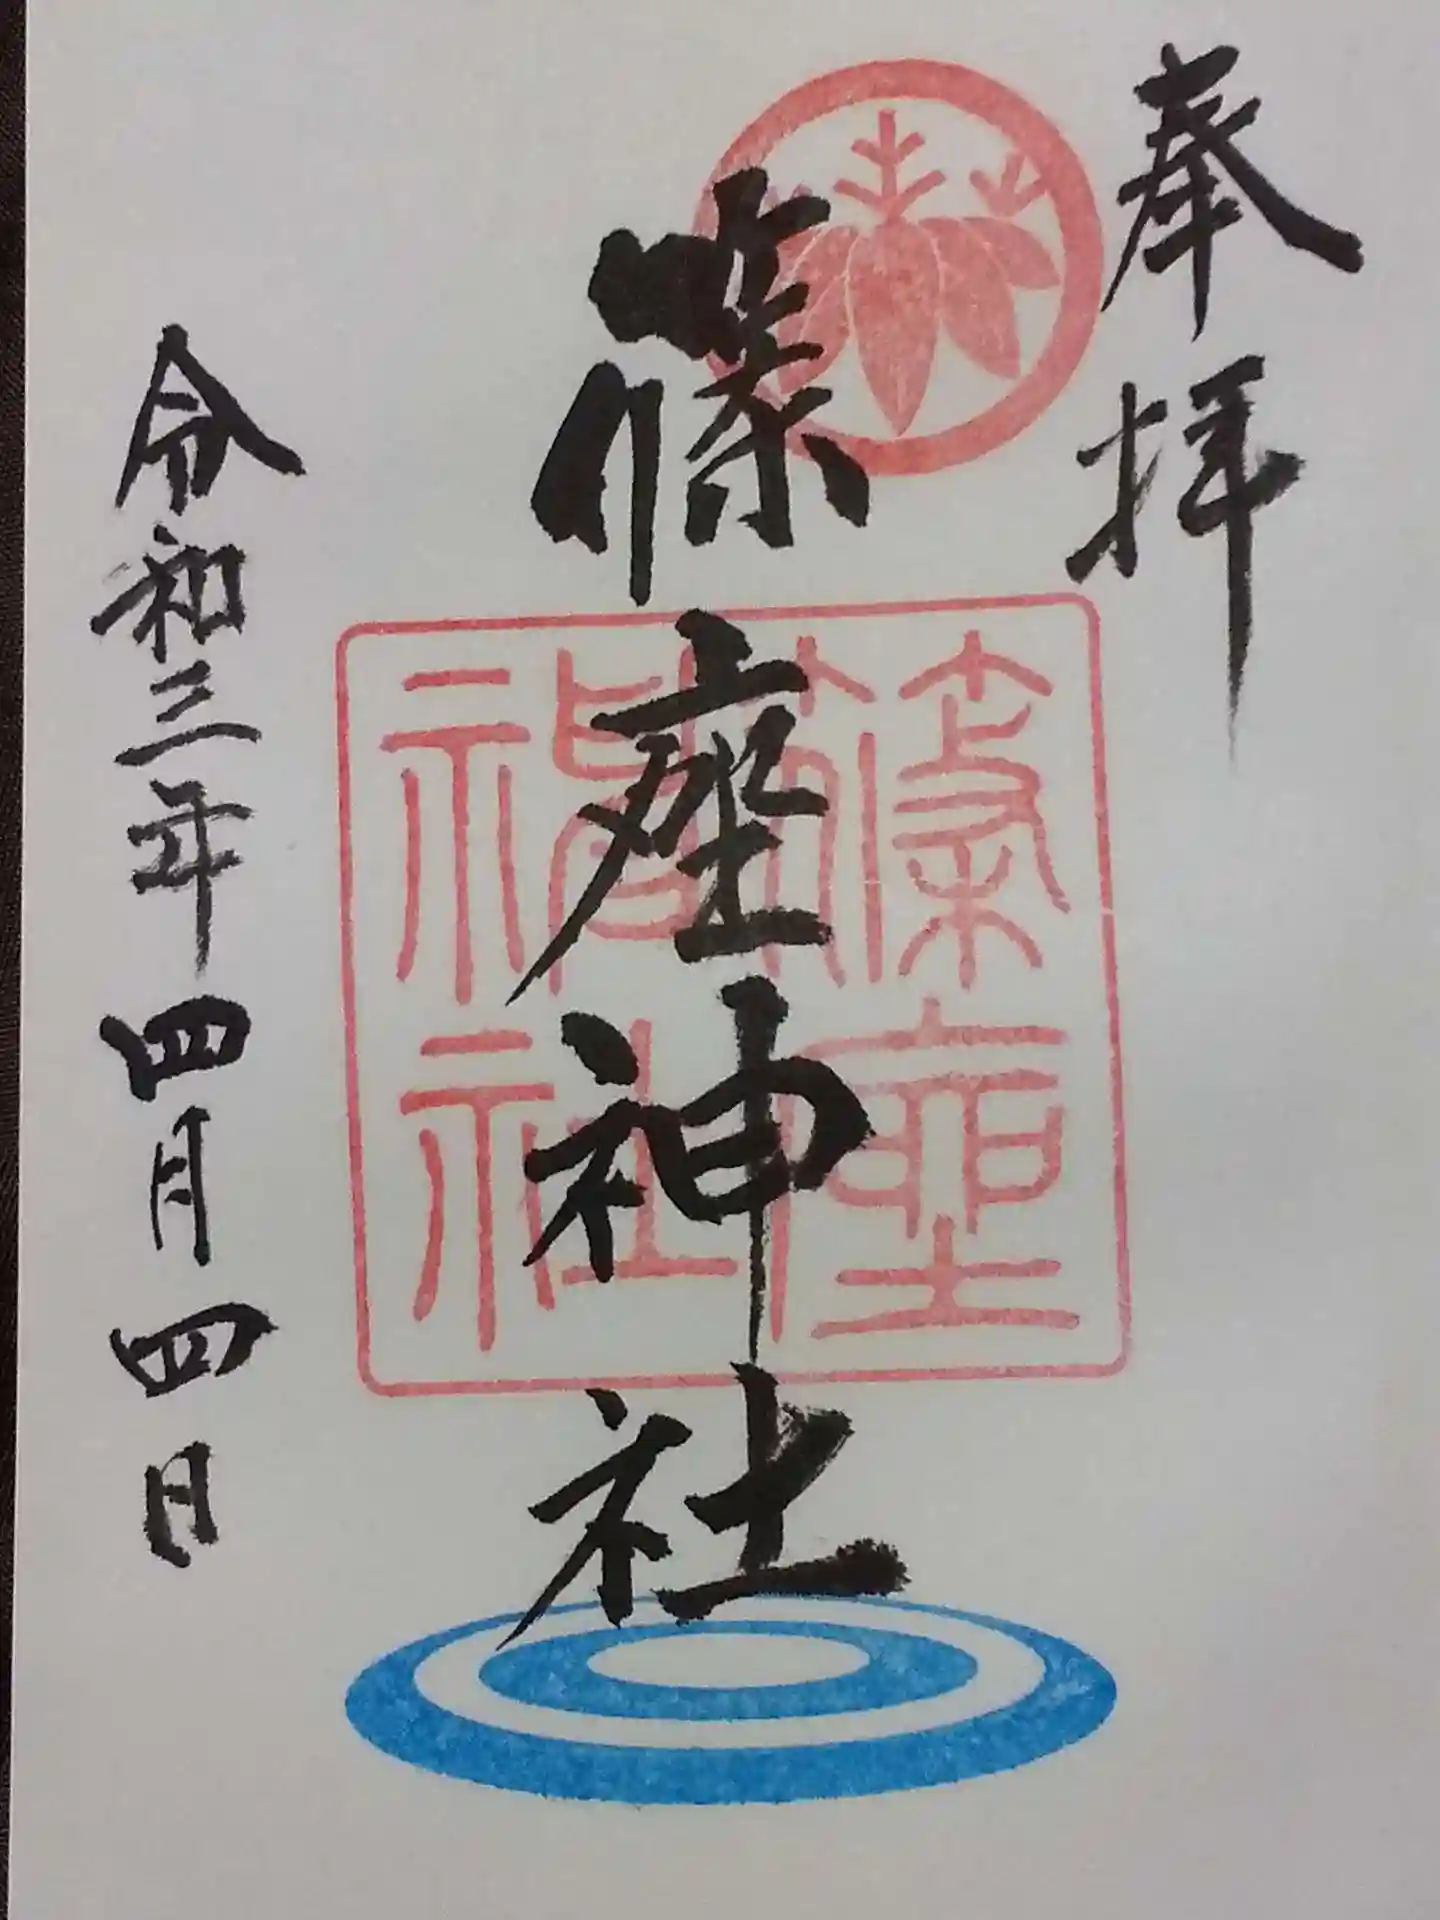 奉拝
篠座神社
篠座
神社
令和三年四月四日